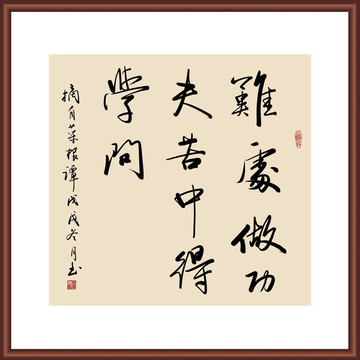 難處做功
夫苦中得
學問
摘自菜根譚戊戌冬月玉